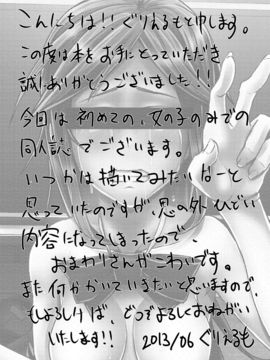 こんにちは!! ぐりえるもと申します。
この度は本をお手にとっていただき
誠にありがとうございました!!
今回は初めての、女の子のみでの
同人誌でございます。
いつかは描いてみたいなーと
思っていたのですが、思いの外ひどい
内容になってしまったので、
おまわりさんがこわいです。
また何かかいていきたいと思いますので、
もしよろしければ、どうぞよろしくおねがい
いたします!! 2013/06 ぐりえるも